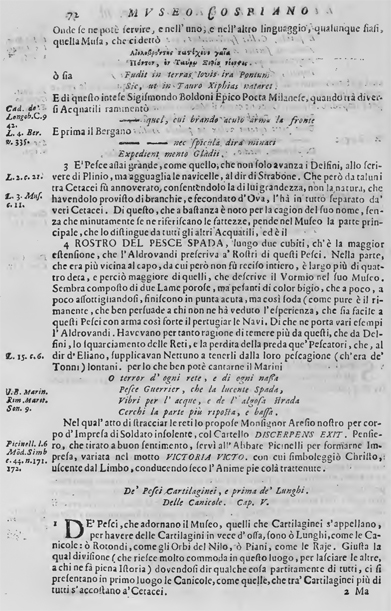 72 MVSEO COSPIANO
Onde se ne potè servire, e nell'uno, e nell'altro linguaggio, qualunque siasi,
quella Musa, che ci dettò
ò sia Fudit in terras Iovis ira Pontum
Sic, ut in Tauro Xiphias nataret
E di questo intese Sigismondo Boldoni Epico Poeta Milanese, quando trà diver-
si Acquatili rammentò
Cad. de
Longob. C. 9
42.
quel, cui brando acuto arma la fronte
E prima il Bergano
L. 4. Ber.
v. 335.
nec spicula dira minaci
Expedient mento Gladii.
3 E' Pesce assai grande, come quello, che non solo avanza i Delfini, allo scri-
vere di Plinio, ma agguaglia le navicelle, al dir di Strabone. Che però da taluni
L. 2. c. 21.
tra Cetacei fù annoverato, consentendolo la di lui grandezza, non la natura, che
havendolo provisto di branchie, e fecondato d'Ova, l'hà in tutto separato da'
L. 3. Mus.
c. 11.
veri Cetacei. Di questo, che a bastanza è noto per la cagion del suo nome, sen-
za che minutamente se ne riferiscano le fattezze, pende nel Museo la parte prin-
cipale, che lo distingue da tutti gli altri Acquatili, ed è il
4 ROSTRO DEL PESCE SPADA, lungo due cubiti, ch'è la maggior
estensione, che l'Aldrovandi preferiva a' Rostri di questi Pesci. Nella parte,
che era più vicina al capo, da cui però non fù reciso intero, è largo più di quat-
tro deta, e perciò maggiore di quelli, che descrisse il Vormio nel suo Museo.
Sembra composto di due Lame porose, ma pesanti di color bigio, che a poco, a
poco assottigliandosi, finiscono in punta acuta, ma così soda (come pure è il ri-
manente, che ben persuade a chi non ne hà veduto l'esperienza, che sia facile a
questi Pesci con arma così forte il pertugiar le Navi. Di che ne porta vari esempi
l'Aldrovandi. Havevano per tanto ragione di temere più da questi, che da Del-
fini, lo squarciamento delle Reti, e la perdita della preda que' Pescatori, che, al
L. 15. c. 6.
dir d'Eliano, supplicavan Nettuno a tenerli dalla loro pescagione (ch'era de'
Tonni) lontani. per lo che ben potè cantarne il Marini
O terror d'ogni rete, e di ogni nassa
V.B. Marin.
Rim. Marit.
Son. 9.
Pesce Guerrier, che la lucente Spada,
Vibri per l'acque, e de l'algosa strada
Cerchi la parte più riposta, e bassa.
Nel qual'atto di stracciar le reti lo propose Monsignor Aresio nostro per cor-
po d'Impresa di Soldato insolente, col Cartello DISCERPENS EXIT. Pensie-
Picinell. l. 6
Mõd. Simb
c. 44. n. 171.
172.
ro, che tirato a buon sentimento, servì all'Abbate Picinelli per formarne Im-
presa, variata nel motto VICTORIA VICTO. con cui simboleggiò Christo,
uscente dal Limbo, conducendo seco l'Anime pie colà trattenute.
De' Pesci Cartilaginei, e prima de' Lunghi.
Delle Canicole. Cap. V.
1 DE' Pesci, che adornano il Museo, quelli che Cartilaginei s'appellano,
per havere delle Cartilagini in vece d'ossa, sono ò Lunghi, come le Ca-
nicole: ò Rotondi, come gli Orbi del Nilo, ò Piani, come le Raje. Giusta la
qual divisione (che riesce molto commoda in questo luogo, per lasciare le altre,
a chi ne fà piena Istoria) dovendosi dir qualche cosa partitamente di tutti, ci si
presentano in primo luogo le Canicole, come quelle, che trà Cartilaginei più di
tutti s'accostano a'Cetacei. 2 Ma